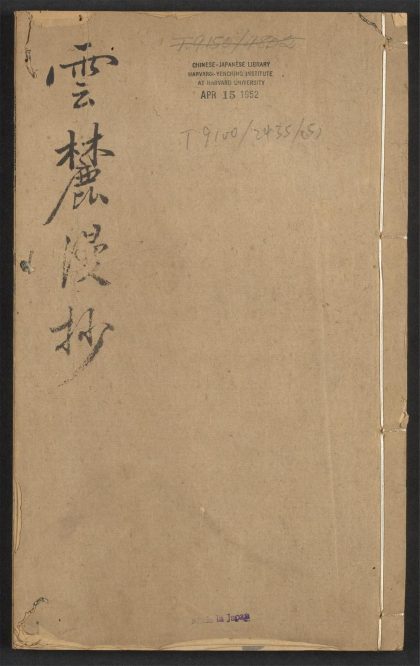 雲麓漫抄
CHINESE-JAPANESE LIBRARY
HARVARD-YENCHING INSTITUTE
AT HARVARD UNIVERSITY
APR 15 1952
T 9100/2435
in Japan